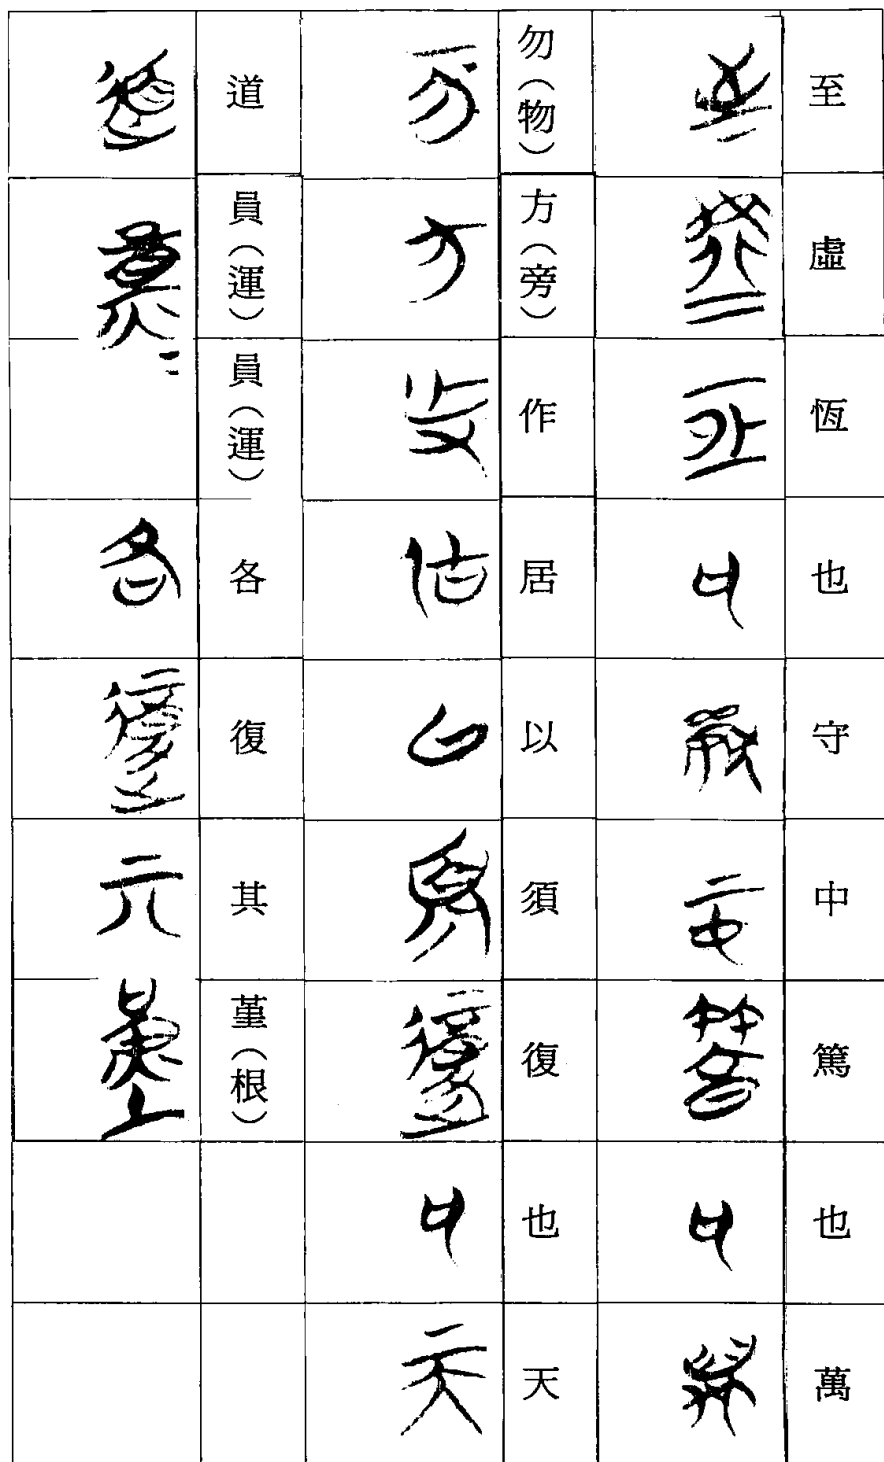 至虛恆也守中篤也萬
勿（物）方（旁）作居以須復也天
道員（運）員（運）各復其堇（根）